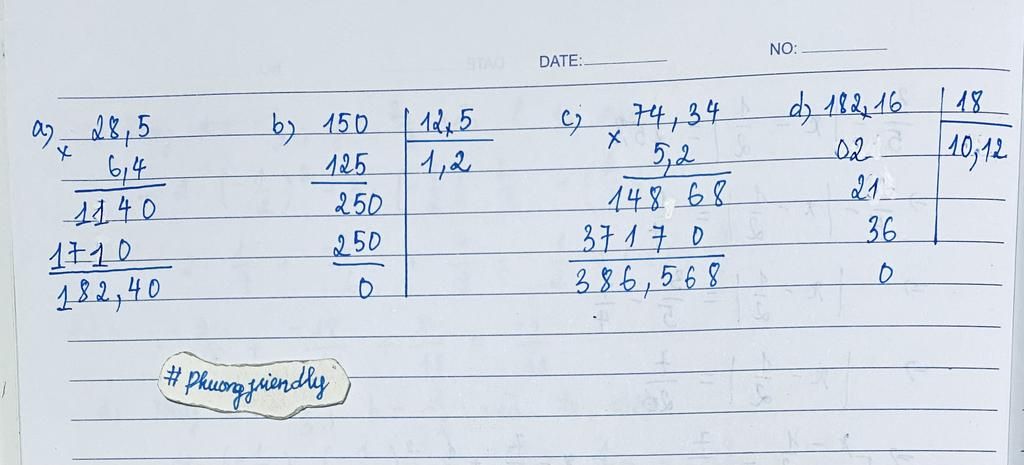 DATE: NO:
a) 28,5 b) 150 12,5 c) 74,34 d) 182,16 18
x 6,4 125 1,2 x 5,2 02 10,12
1140 250 148 68 21
1710 250 3717 0 36
182,40 0 386,568 0
# Phuongfriendly